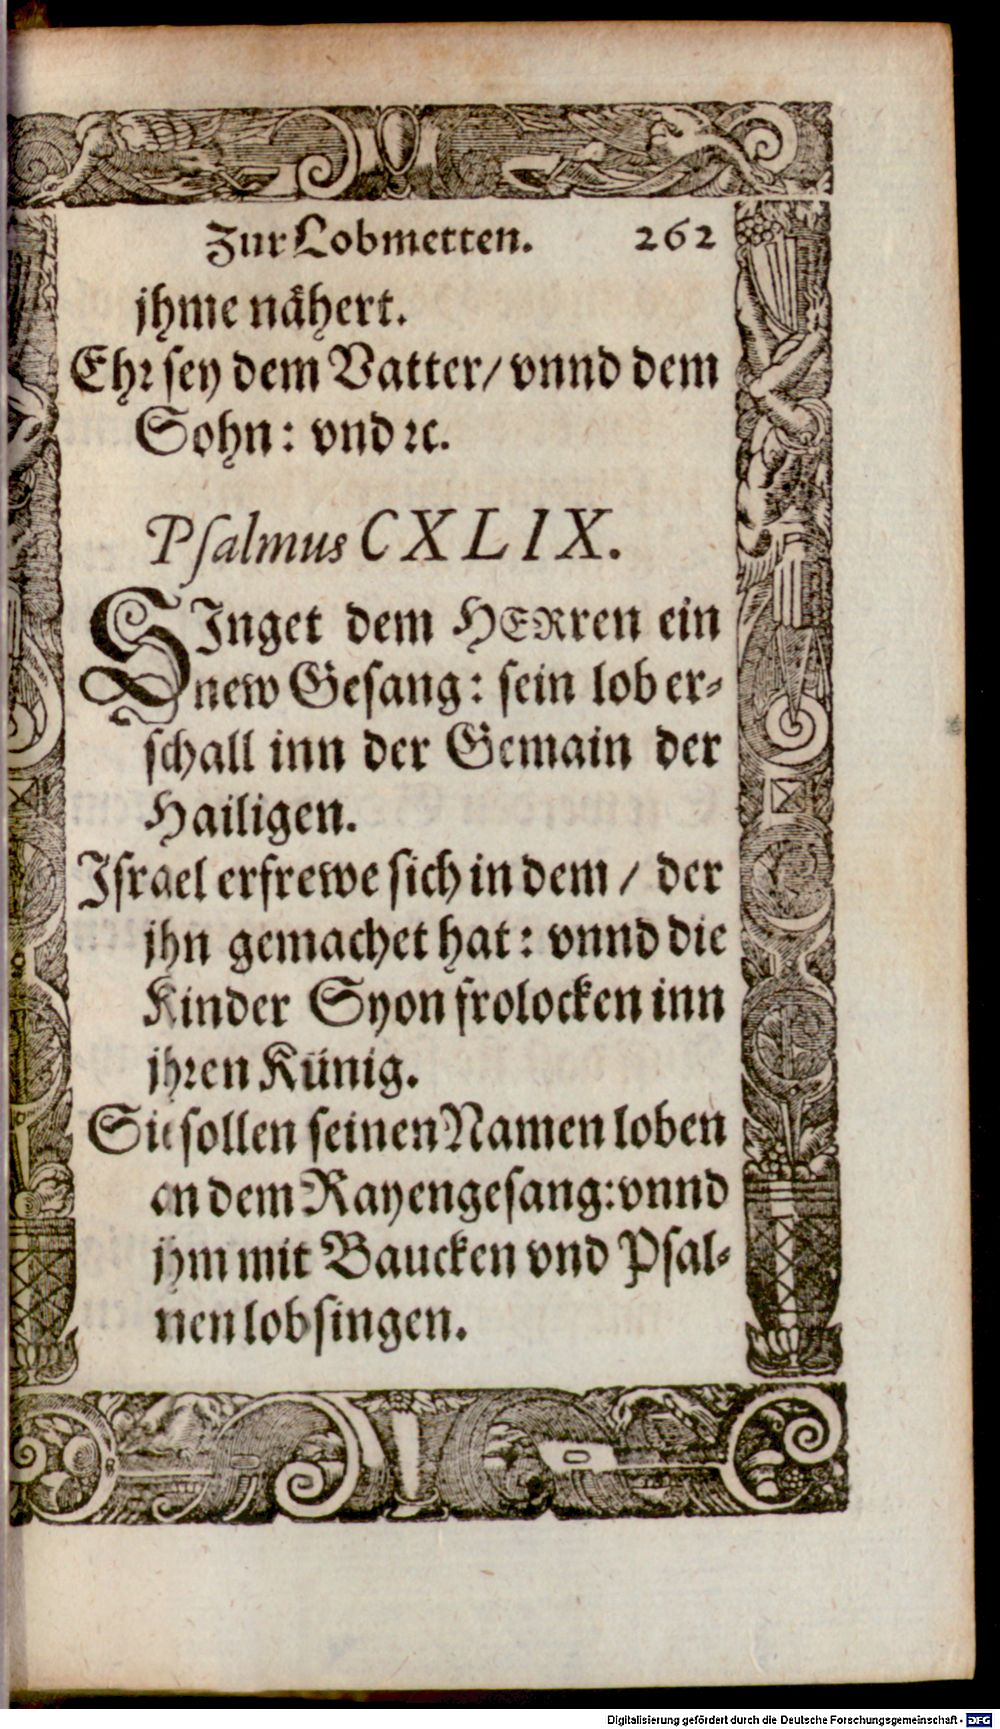 Zur Lobmetten. 262
jhme nähert.
Ehr sey dem Vatter/ vnnd dem
Sohn: vnd ꝛc.
Psalmus CXLIX.
SInget dem HERren ein
new Gesang: sein lob er-
schall inn der Gemain der
Hailigen.
Israel erfrewe sich in dem / der
jhn gemachet hat: vnnd die
Kinder Syon frolocken inn
jhren Künig.
Sie sollen seinen Namen loben
an dem Rayengesang: vnnd
jhm mit Baucken vnd Psal-
nen lobsingen.
Digitalisierung gefördert durch die Deutsche Forschungsgemeinschaft - DFG